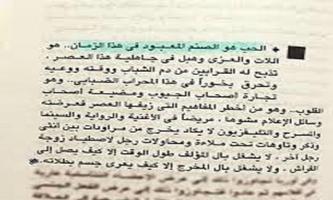 ♦ الحب هو الصنم المعبود فى هذا الزمان.. هو
اللات والعزى وهبل فى جاهلية هذا العصر.
تذبح له القرابين من دم الشباب ووقته ووعيه
وتحرق بخوراً فى هذا المحراب الضبابى.. وهو
تجارة أصحاب الجيوب ومضيعة أصحاب
القلوب.. وهو من أخطر المفاهيم التى زيفها العصر فعرضته
وسائل الإعلام مشوها. مريضا فى الأغنية والرواية والسينما
والمسرح والتليفزيون لا يكاد يخرج عن مراودات بين أنثى
وذكر وتأوهات تحت ملاءة ومحاولات رجل لاصطياد زوجة
رجل آخر. لا يشغل بال المؤلف طول الوقت إلا كيف يصل إلى
الفراش. ولا يشغل بال المخرج إلا كيف يعرى جسم بطلاته.